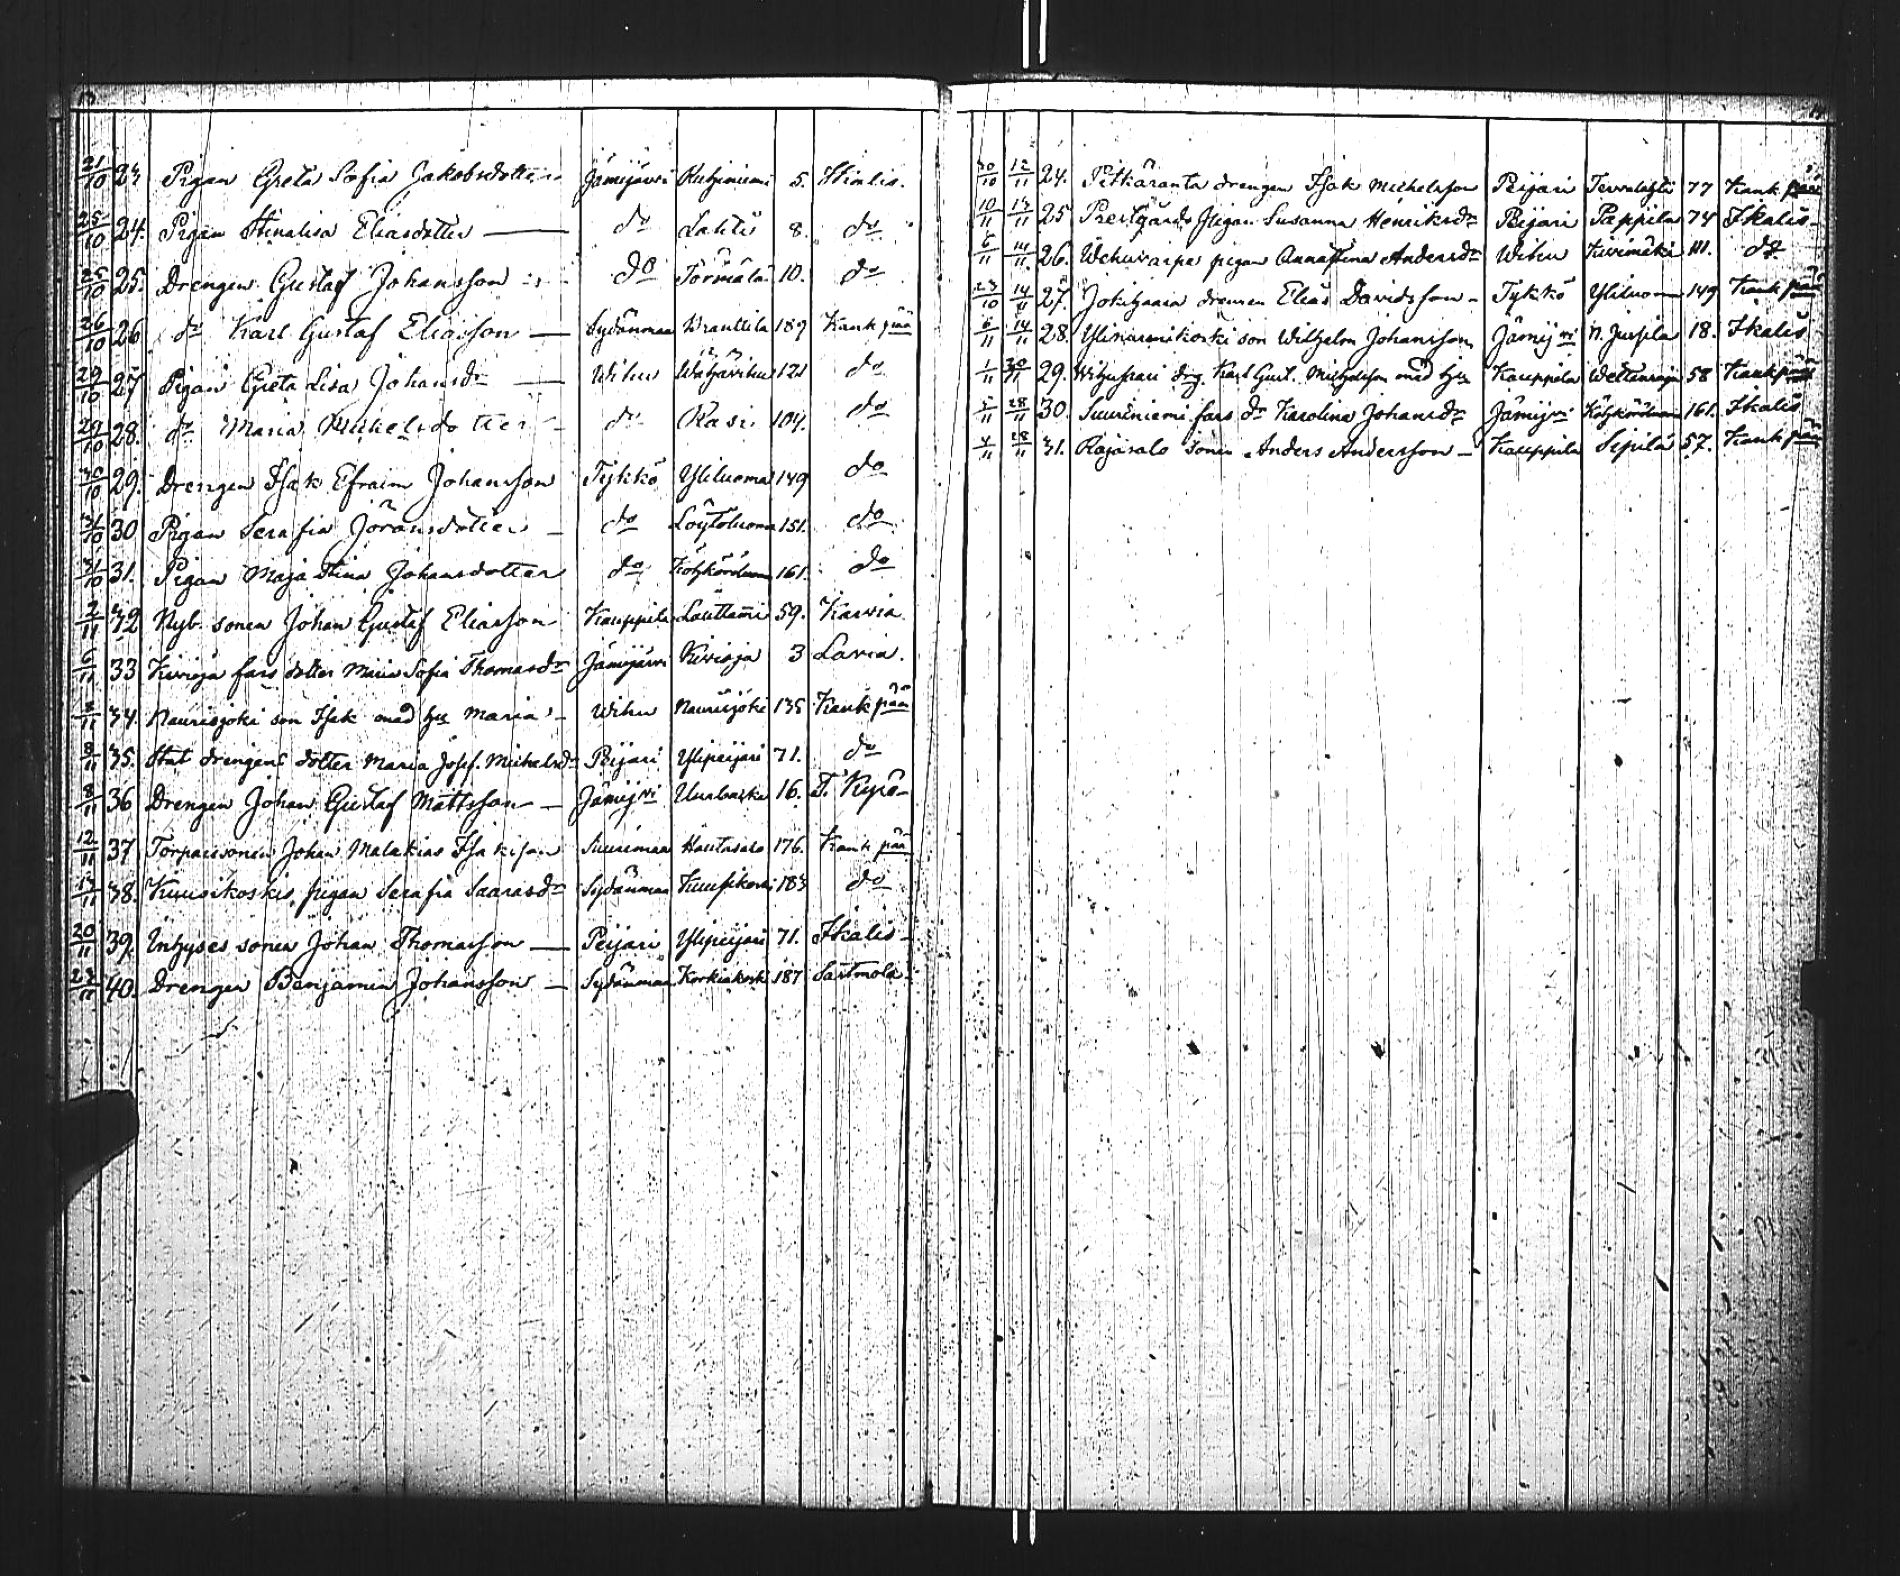 21/10 23 Pigan Greta Sofia Jakobsdotter Jämijärvi 5. Ikalis.
25/10 24. Pigan Stinalisa Eliasdotter — do Lahtis 8. do
25/10 25. Drengen Gustaf Johansson do Törmälä 10. do
26/10 26 do Karl Gustaf Eliasson — Sydänmaa Kranttila 189 Kankpää
29/10 27 Pigan Greta Lisa Johansdr — Wihu 121 do
29/10 28. do Maria Michelsdotter do Rasi 104. do
30/10 29. Drengen Isak Efraim Johansson Tykkö Yliluoma 149 do
31/10 30 Pigan Serafia Jöransdotter — do Löytoluoma 151. do
31/10 31. Pigan Maja Stina Johansdotter do Kötkönluoma 161. do
2/11 32 Nyb. sonen Johan Gustaf Eliasson Kauppila Lauttami 59. Karvia.
5/11 33 Kivioja fars dotter Maria Sofia Thomasdr Jämijärvi Kivioja 3 Lavia.
34. Naurisjoki son Isak med hu Maria — Wihu Naurisjoki 135 Kankpää
8/11 35. Stat drengens dotter Maria Josef. Michelsdr Peijari Ylipeijari 71. do
8/11 36 Drengen Johan Gustaf Mattsson — Jämijvi 16. T. Kyrö
12/11 37 Torparesonen Johan Malakias Isaksson Suurimaa Hautasalo 176. Kankpää
13/11 38. Kuusikoskis pigan Serafia Saarasdr Sydänmaa Kuusikoski 183 do
20/11 39. Inhyses sonen Johan Thomasson — Peijari Ylipeijari 71. Ikalis
23/11 40. Drengen Benjamin Johansson — Sydänmaa Korkiakoski 187 Sastmola
30/10 12/11 24. Pitkäranta drengen Isak Michelsson Peijari Tervalahti 77 Kankpää
10/11 13/11 25 Prestgårds pigan Susanna Henriksdr Peijari Pappila 74 Ikalis
6/11 14/11 26. Wehuvarpe pigan Annastina Andersdr Wihu Kivimäki 111. do
23/10 14/11 27. Jokihaara drengen Elias Davidsson — Tykkö Yliluoma 149 Kankpää
6/11 14/11 28. Ylinarmikoski son Wilhelm Johansson Jämijvi 18. Ikalis
1/11 20/11 29. drg. Karl Gust. Michelsson med hu Kauppila 58 Kankpää
5/11 28/11 30. Suuriniemi fars dr Karolina Johansdr Jämijvi Kötkönluoma 161. Ikalis
4/11 28/11 31. Rajasalo sonen Anders Andersson — Kauppila Sipilä 57. Kankpää